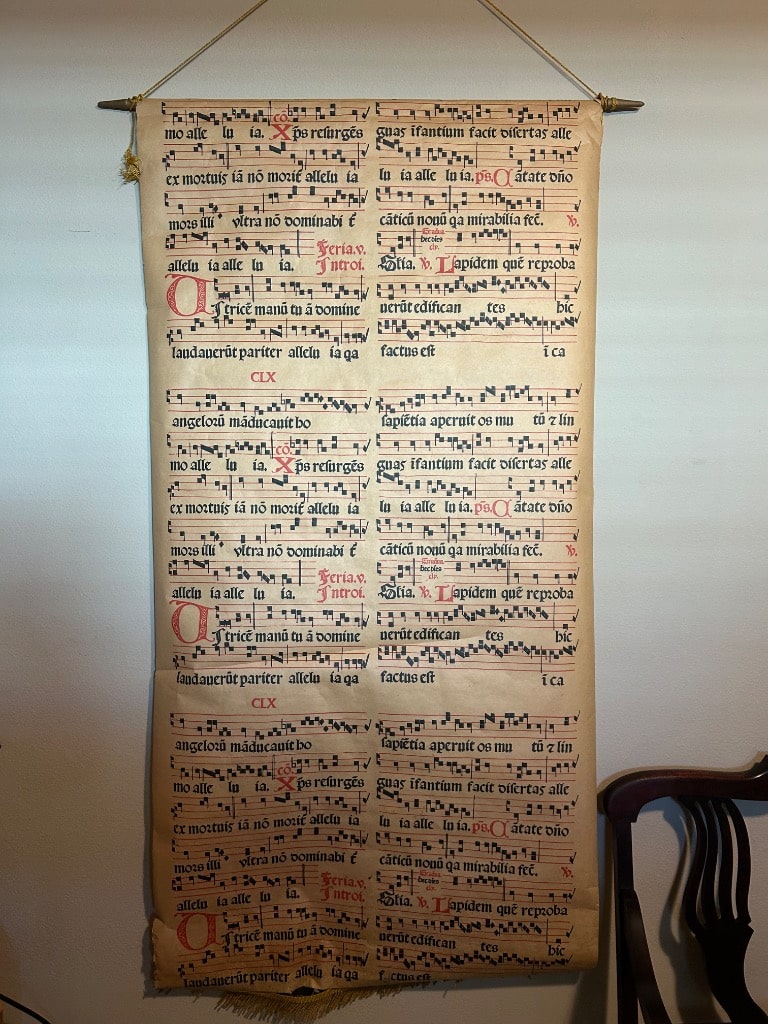 mo alle lu ia. cō. Xp̄s resurgēs
ex mortuis iā nō morit̄ allelu ia
mors illi vltra nō dominabi t̄
allelu ia alle lu ia. Feria.v.
Introi.
Uictricē manū tu ā domine
laudauerūt pariter allelu ia qa
CLX
angelorū māducauit ho
mo alle lu ia. cō. Xp̄s resurgēs
ex mortuis iā nō morit̄ allelu ia
mors illi vltra nō dominabi t̄
allelu ia alle lu ia. Feria.v.
Introi.
Uictricē manū tu ā domine
laudauerūt pariter allelu ia qa
CLX
angelorū māducauit ho
mo alle lu ia. cō. Xp̄s resurgēs
ex mortuis iā nō morit̄ allelu ia
mors illi vltra nō dominabi t̄
allelu ia alle lu ia. Feria.v.
Introi.
Uictricē manū tu ā domine
laudauerūt pariter allelu ia qa
guas īfantium facit disertas alle
lu ia alle lu ia. ps. Cātate dn̄o
cāticū nouū qa mirabilia fec̄. V.
Glia. V. Lapidem quē reproba
uerūt edifican tes hic
factus est ī ca
sapiētia aperuit os mu tū ⁊ lin
guas īfantium facit disertas alle
lu ia alle lu ia. ps. Cātate dn̄o
cāticū nouū qa mirabilia fec̄. V.
Glia. V. Lapidem quē reproba
uerūt edifican tes hic
factus est ī ca
sapiētia aperuit os mu tū ⁊ lin
guas īfantium facit disertas alle
lu ia alle lu ia. ps. Cātate dn̄o
cāticū nouū qa mirabilia fec̄. V.
Glia. V. Lapidem quē reproba
uerūt edifican tes hic
factus est